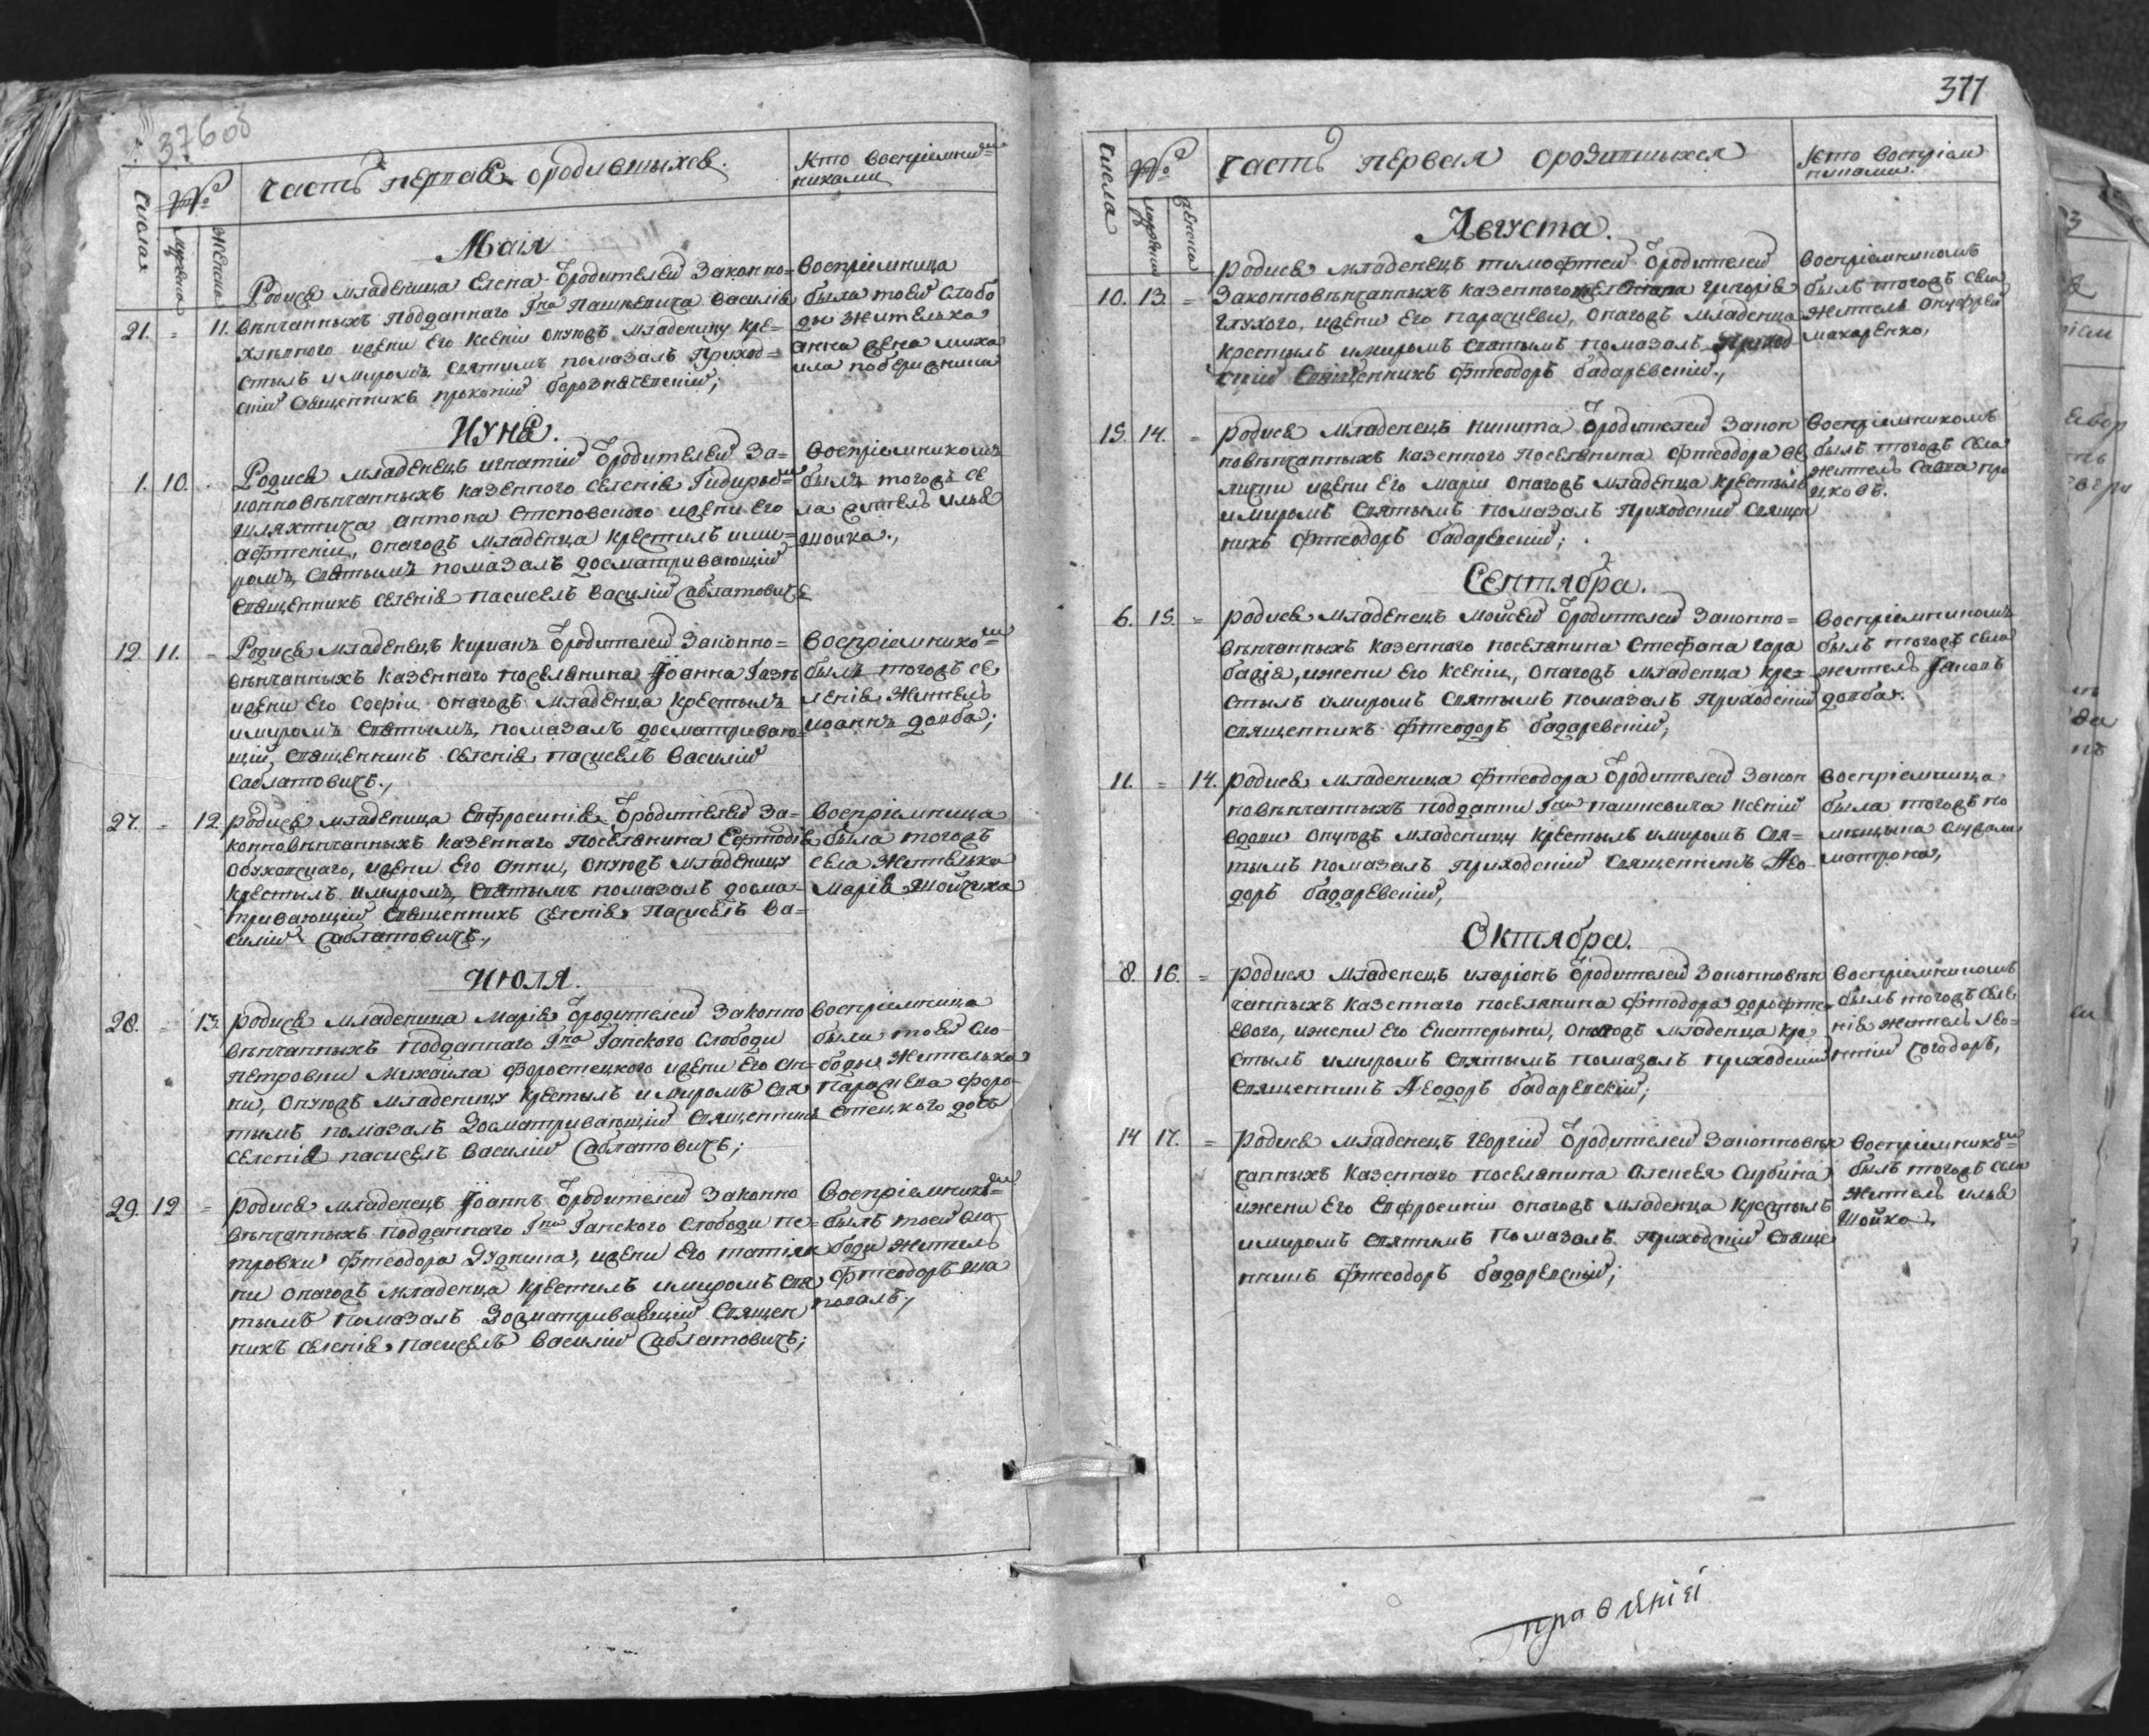 376 об
Числа
№
мужеска
женска
Часть первая ородившихся.
Кто восприемни=
ками
Маія
Родися младеница Елена Ѿродителей законно=
21. = 11. вѣнчанныхъ подданнаго Гна Пашкевича Василія
жени его Ксеніи онуюжъ младеницу кре=
стилъ имиромъ святымъ помазалъ приход=
скій священникъ прокопій
Восприемница
была тоей слобо
ды жителька
анна жена миха
ила
Июня.
1. 10. Родися младенецъ игнатій Ѿродителей за=
конновѣнчанныхъ казенного селенія
шляхтича антона Стеновского жени его
афтеніи, онагожъ младенца крестилъ ими=
ромъ, святымъ помазалъ досматривающій
священникъ селенія пасисель василій саблатовичъ
Восприемникомъ
былъ тогожъ се
ла житель илья
Шойка.,
12 11. = Родися младенецъ Кирианъ Ѿродителей законно=
вѣнчанныхъ казеннаго поселянина Іоанна
жени его Софіи онагожъ младенца крестилъ
имиромъ святымъ, помазалъ досматриваю=
щій, священникъ селенія пасисель василій
саблатовичъ.,
Восприемнико=
былъ тогожъ се
ленія житель
иоаннъ долба;
27. = 12. родися младеница Евфросинія Ѿродителей за=
конновѣнчанныхъ казеннаго поселянина Ефтодія
Обуховскаго, жени его Анни, онуюжъ младеницу
крестилъ имиромъ, святымъ помазалъ досма=
тривающій священникъ селенія пасисель ва=
силій саблатовичъ.,
Восприемница
была тогожъ
села жителька
Марія Шойчиха
ИЮЛЯ.
28. = 13. родися младеница Марія Ѿродителей законно
вѣнчанныхъ подданнаго Гна Ганского слободи
петровки михаила форостецкого жени его ан=
ни, онуюжъ младеницу крестилъ имиромъ свя
тымъ помазалъ досматривающій священникъ
селенія пасисель василій саблатовичъ;
Восприемница
были тоей сло=
боды жителька
Параскева форо=
стецкого дочь
29. 12 = родися младенецъ Іоаннъ Ѿродителей законно
вѣнчанныхъ подданнаго Гна Ганского слободи пе=
тровки фтеодора Дудника, жени его татія
ни онагожъ младенца крестилъ имиромъ свя
тымъ помазалъ досматривающій священ
никъ селенія пасисель василій саблатовичъ;
Восприемнико=
былъ тоей сло
боди житель
фтеодоръ ша
повалъ.,
377
Числа
№
мужеска
женска
Часть первая ородившихся
Кто восприем
никами.
Августа.
родися младенецъ тимофтей Ѿродителей
10. 13. = Законновѣнчанныхъ казенного григорія
глухого, жени его параскеви, онагожъ младенца
крестилъ имиромъ святымъ помазалъ приход
скій священникъ фтеодоръ бадаревскій.,
восприемникомъ
былъ тогожъ села
житель Онуфрей
макаренко,
15. 14. = родися младенецъ никита Ѿродителей закон
новѣнчанныхъ казенного поселянина фтеодора
жени его маріи онагожъ младенца крестилъ
имиромъ святымъ помазалъ приходскій священ
никъ фтеодоръ бадаревскій;
Восприемникомъ
былъ тогожъ села
житель Савва про
цковъ.
Сентября.
6. 15. = родися младенецъ мойсей Ѿродителей законно=
вѣнчанныхъ казеннаго поселянина Стефана гара
бажія, жени его Ксеніи, онагожъ младенца кре=
стилъ имиромъ святымъ помазалъ приходскій
священникъ фтеодоръ бадаревскій;
Восприемникомъ
былъ тогожъ села
житель Іаковъ
долба.
11. = 14. родися младеница фтеодора Ѿродителей закон
новѣнчанныхъ подданни Гна пашкевича Ксеніи
вдови онуюжъ младеницу крестилъ имиромъ свя=
тымъ помазалъ приходскій священникъ Ѳео=
доръ бадаревскій;
Восприемница
была тогожъ по
матрона,
Октября.
8. 16. = родися младенецъ иларіонъ Ѿродителей законновѣн
чанныхъ казеннаго поселянина фтодора дорофте=
евого, жени его екатерини, онагожъ младенца кре
стилъ имиромъ святымъ помазалъ приходскій
священникъ Ѳеодоръ бадаревскій;
Восприемникомъ
былъ тогожъ селе
нія житель лео=
нтій гогодоръ,
14 17. = родися младенецъ Георгій Ѿродителей законновѣн
чанныхъ казеннаго поселянина алексея Сирбина
жени его Евфросиніи онагожъ младенца крестилъ
имиромъ святымъ помазалъ приходскій священ
никъ фтеодоръ бадаревскій;
Восприемнико=
былъ тогожъ села
житель илья
Шойка.
правленія